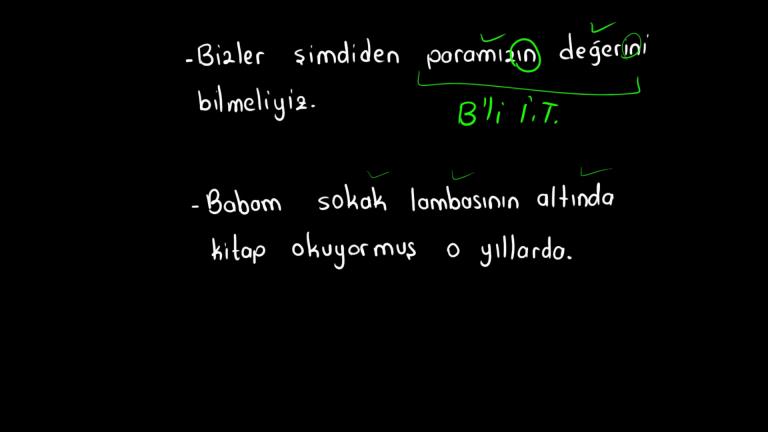 -Bizler şimdiden paramızın değerini
bilmeliyiz.
B'li İ.T.
-Babam sokak lambasının altında
kitap okuyormuş o yıllarda.